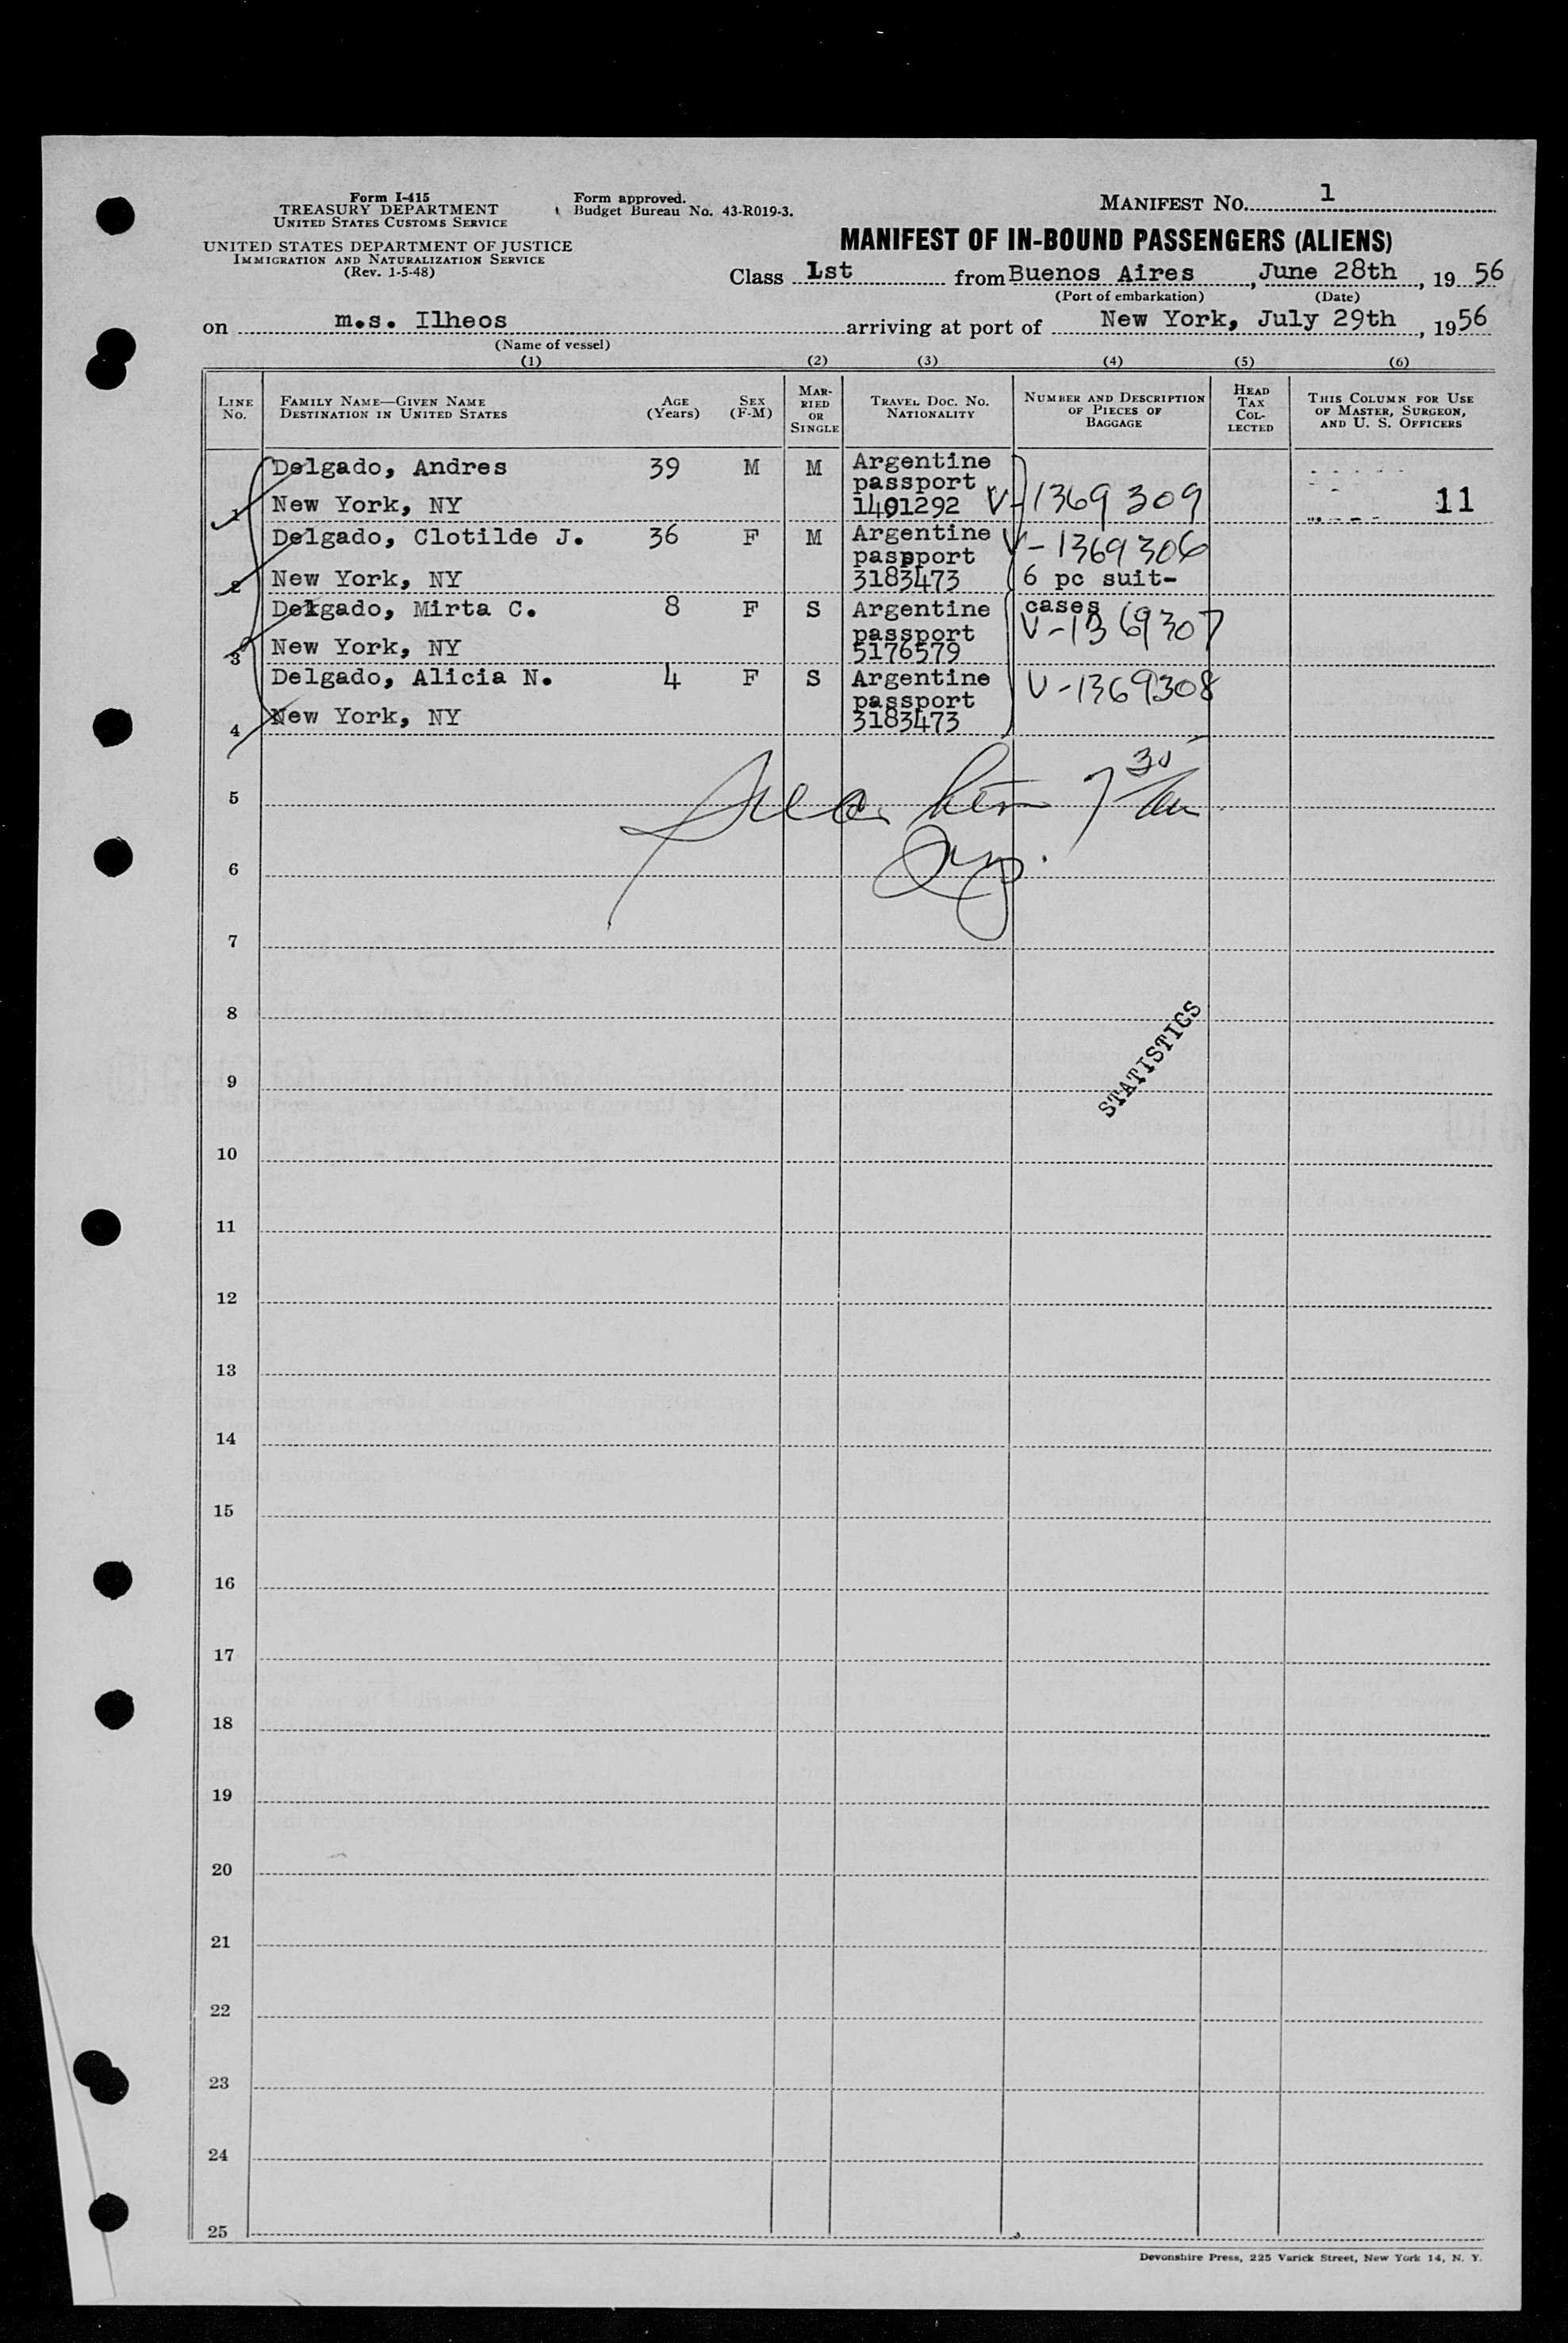 Form I-415
TREASURY DEPARTMENT
UNITED STATES CUSTOMS SERVICE
UNITED STATES DEPARTMENT OF JUSTICE
IMMIGRATION AND NATURALIZATION SERVICE
(Rev. 1-5-48)
Form approved.
Budget Bureau No. 43-R019-3.
MANIFEST NO. 1
MANIFEST OF IN-BOUND PASSENGERS (ALIENS)
Class 1st from Buenos Aires, June 28th, 1956
(Port of embarkation) (Date)
on m.s. Ilheos arriving at port of New York, July 29th, 1956
(Name of vessel)
(1) (2) (3) (4) (5) (6)
LINE NO.
FAMILY NAME—GIVEN NAME
DESTINATION IN UNITED STATES
AGE
(Years)
SEX
(F-M)
MAR-
RIED
OR
SINGLE
TRAVEL DOC. NO.
NATIONALITY
NUMBER AND DESCRIPTION
OF PIECES OF
BAGGAGE
HEAD
TAX
COL-
LECTED
THIS COLUMN FOR USE
OF MASTER, SURGEON,
AND U. S. OFFICERS
Delgado, Andres 39 M M Argentine
passport
1 New York, NY 1401292 V-1369309 11
Delgado, Clotilde J. 36 F M Argentine V-1369306
passport
2 New York, NY 3183473 6 pc suit-
Delgado, Mirta C. 8 F S Argentine cases
passport V-1369307
3 New York, NY 5176579
Delgado, Alicia N. 4 F S Argentine V-1369308
passport
4 New York, NY 3183473
7 30
5
6
7
8
STATISTICS
9
10
11
12
13
14
15
16
17
18
19
20
21
22
23
24
25
Devonshire Press, 225 Varick Street, New York 14, N. Y.